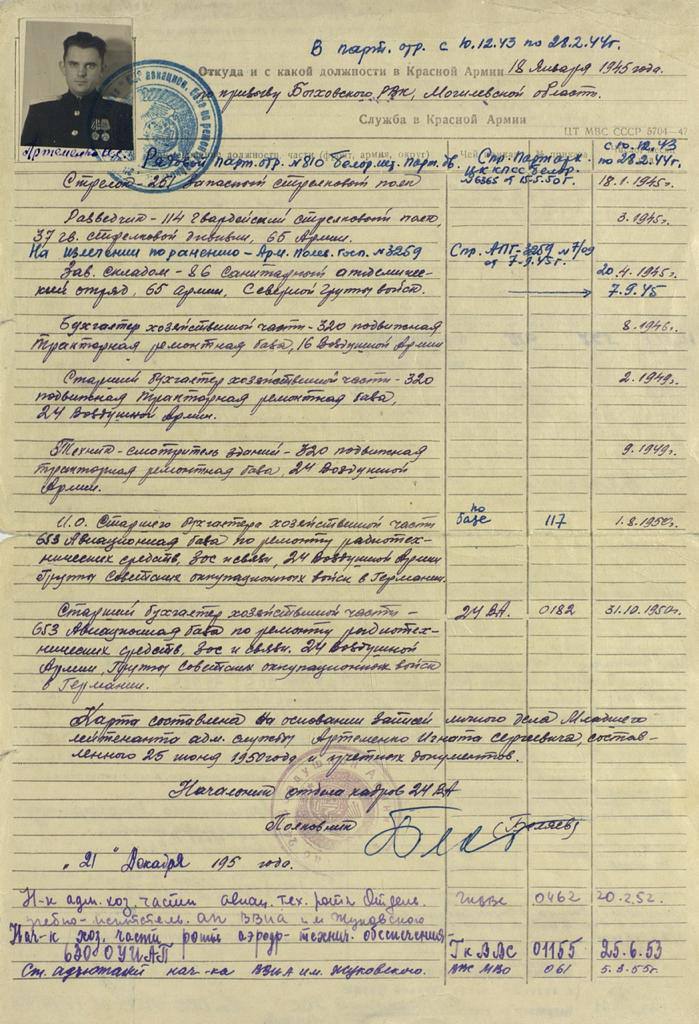 В парт. отр. с 10.12.43 по 28.2.44г.
Откуда и с какой должности в Красной Армии 18 Января 1945 года.
по призыву Быховского РВК, Могилевской область.
Служба в Красной Армии
ЦТ МВС СССР 5704—47
Артеменко И.С.
Рядовой парт. отр. №810 Белор. шт. парт. дв. Спр. Партарх. ЦК КПСС Белор. №6365 от 15.5.50г. с 10.12.43 по 28.2.44г.
Стрелок - 267 Запасной стрелковый полк 18.1.1945г.
Разведчик - 114 гвардейский стрелковый полк, 3.1945г.
37 гв. стрелковой дивизии, 65 Армии.
На излечении по ранению - Арм. Полев. госп. №3259 Спр. АПГ-3259 №7/09 от 7-9.45г.
Зав. складом - 86 Санитарный отдел 20.4.1945г.
отряд, 65 Армии, Северной Группы войск. 7.9.45
Бухгалтер хозяйственной части - 320 подвижная 8.1946г.
тракторная ремонтная база, 16 Воздушной Армии
Старший бухгалтер хозяйственной части - 320 2.1949г.
подвижная тракторная ремонтная база,
24 Воздушной Армии.
Техник-смотритель зданий - 320 подвижная 9.1949г.
тракторная ремонтная база, 24 Воздушной
Армии.
И.О. Старшего бухгалтера хозяйственной части по базе 117 1.8.1950г.
653 Авиационная база по ремонту радиотех-
нических средств, Зос и связи, 24 Воздушной Армии
Группы Советских оккупационных войск в Германии.
Старший бухгалтер хозяйственной части - 24 ВА. 0182 31.10.1950г.
653 Авиационная база по ремонту радиотех-
нических средств, Зос и связи. 24 Воздушной
Армии, Группы Советских оккупационных войск
в Германии.
Карта составлена на основании записей личного дела Младшего
лейтенанта адм. службы Артеменко Игната Сергеевича, состав-
ленного 25 июня 1950 года и учетных документов.
Начальник отдела кадров 24 ВА
Полковник (Беляев)
„21" Декабря 195 года.
Н-к адм. хоз. части авиац. тех. роты Отдель. 0462 20.2.52.
учебно- АП ВВИА им Жуковского
Нач-к хоз. части роты аэродр-технич. обеспечения ГкВВС 01155 25.6.53
630 ОУИАП
Ст. адъютант нач-ка ВВИА им. Жуковского. ВВС МВО 061 5.3.55г.